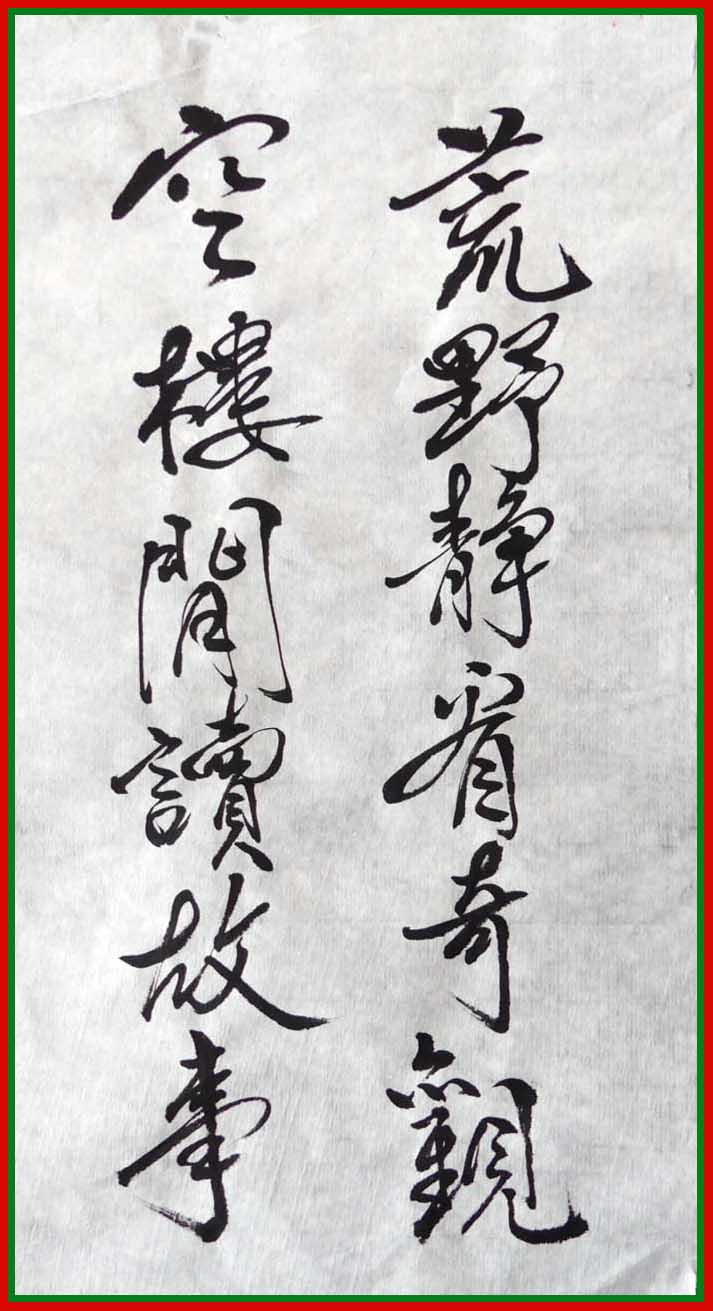 荒野靜看奇觀
空樓閒讀故事